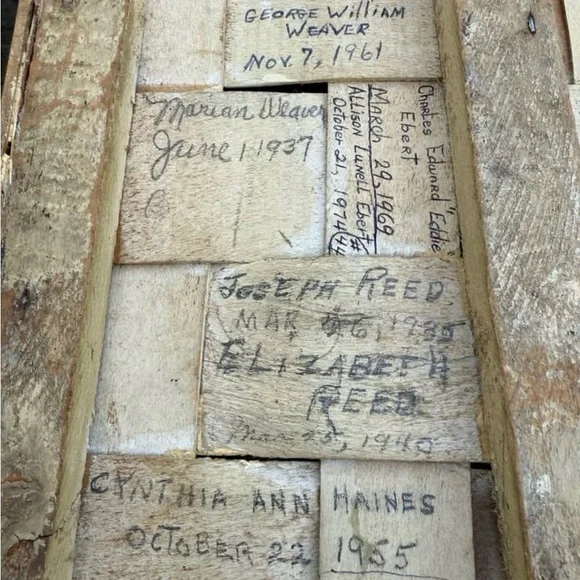 GEORGE WILLIAM
WEAVER
NOV. 7, 1961
Marian Weaver
June 1 1937
Charles Edward "Eddie"
Ebert
MARCH 29, 1969
ALLISON LUNELL Ebert
October 21, 1974
JOSEPH REED.
MAR 1935
ELIZABETH
REED
Mar 25, 1940
CYNTHIA ANN HAINES
OCTOBER 22 1955